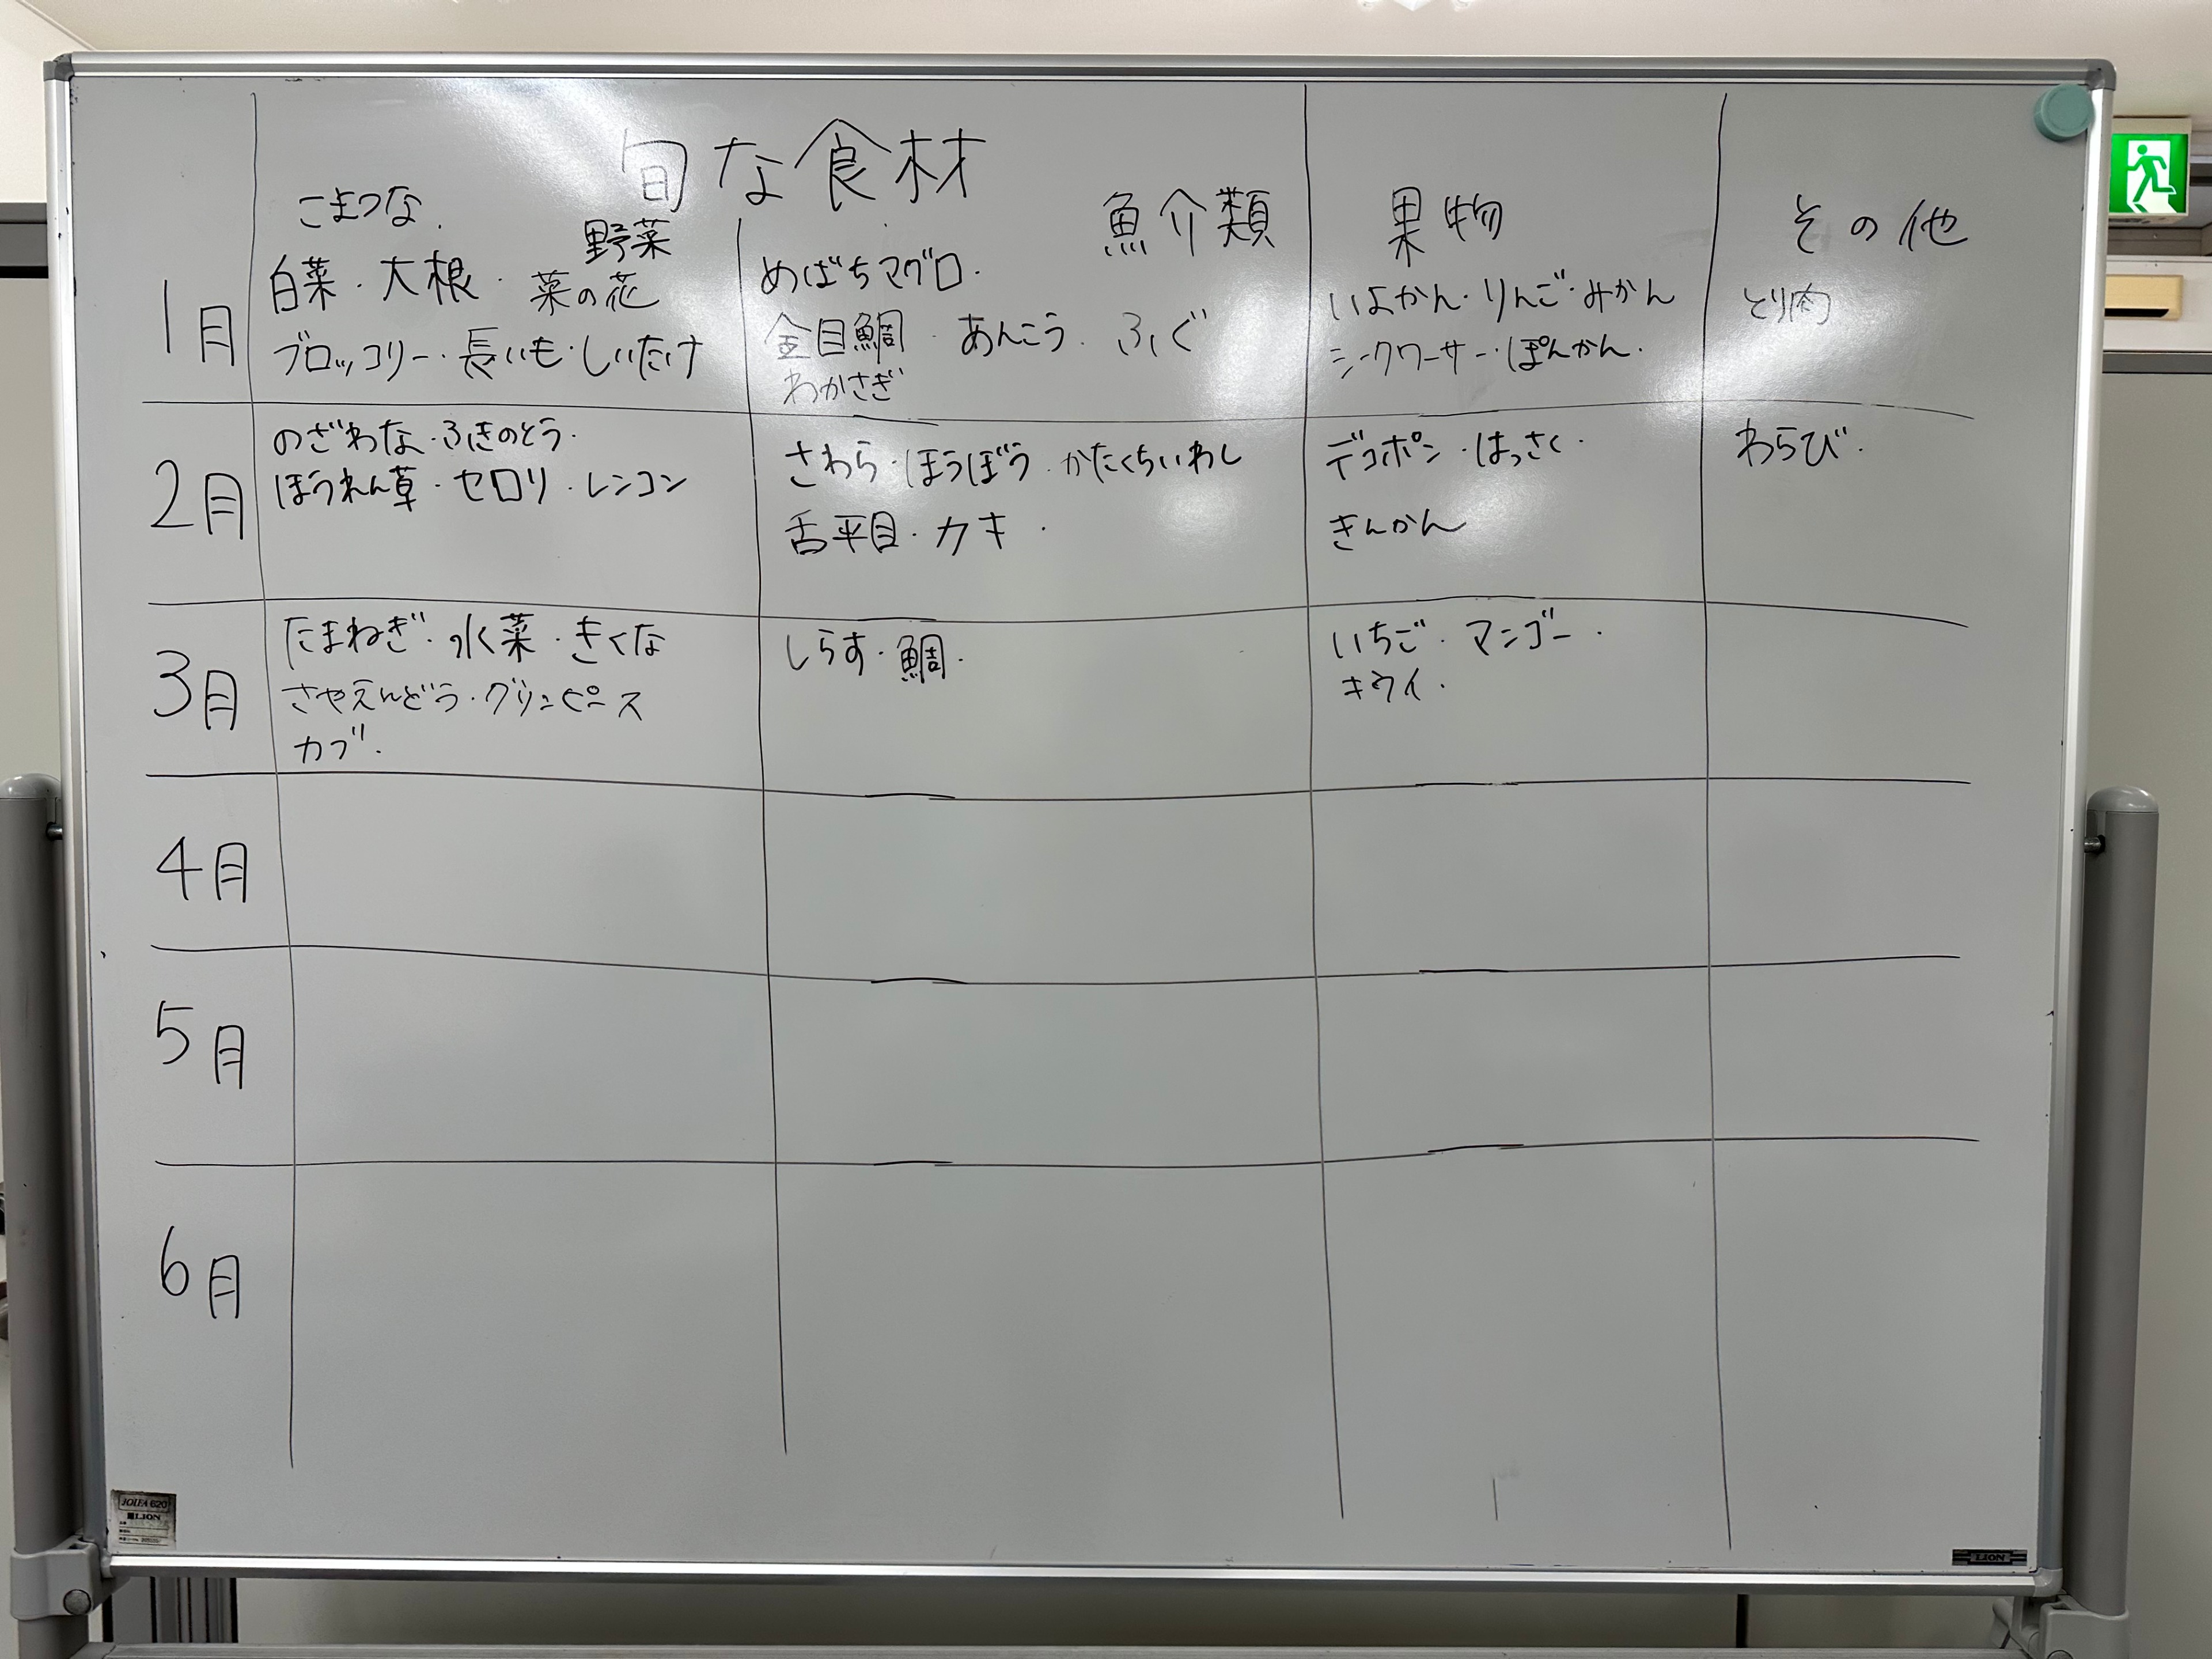 旬な食材
野菜
魚介類
果物
その他
1月
こまつな.
白菜・大根・菜の花
ブロッコリー・長いも・しいたけ
めばちマグロ・
金目鯛・あんこう・ふぐ
わかさぎ
いよかん・りんご・みかん
シークワーサー・ぽんかん・
とり肉
2月
のざわな・ふきのとう・
ほうれん草・セロリ・レンコン
さわら・ほうぼう・かたくちいわし
舌平目・カキ・
デコポン・はっさく・
きんかん
わらび・
3月
たまねぎ・水菜・きくな
さやえんどう・グリンピース
カブ・
しらす・鯛・
いちご・マンゴー・
キウイ・
4月
5月
6月
JOIFA 620
LION
LION